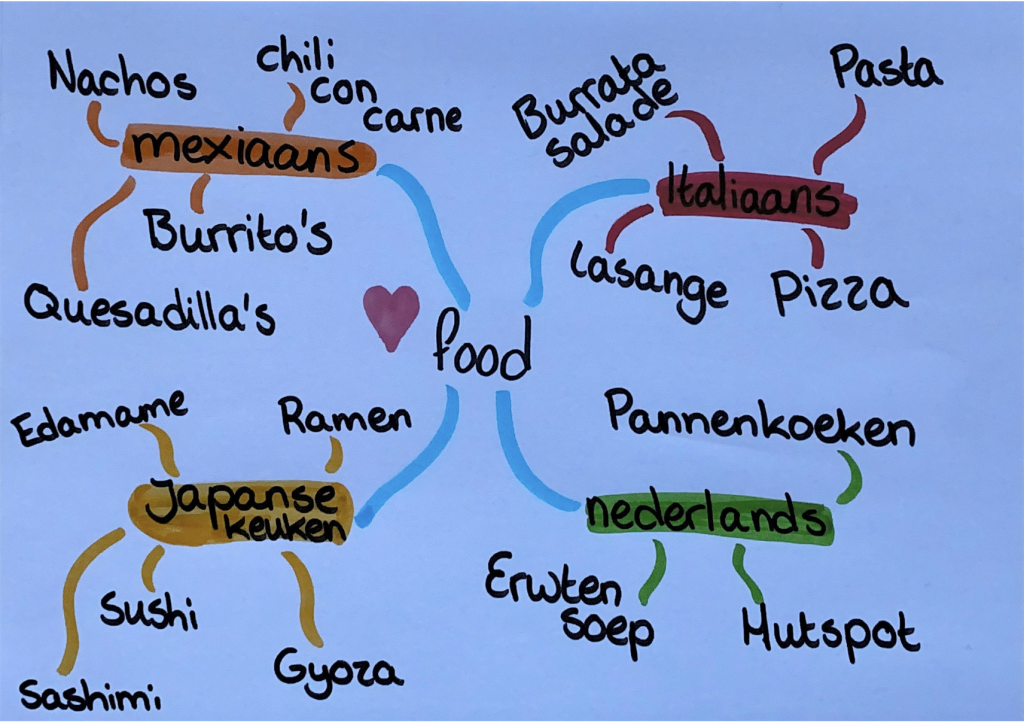 Nachos
chili
con
carne
mexiaans
Burrito's
Quesadilla's
Burrata
salade
Pasta
Italiaans
Lasange
Pizza
food
Edamame
Ramen
Japanse
keuken
Sushi
Gyoza
Sashimi
Pannenkoeken
nederlands
Erwten
soep
Hutspot